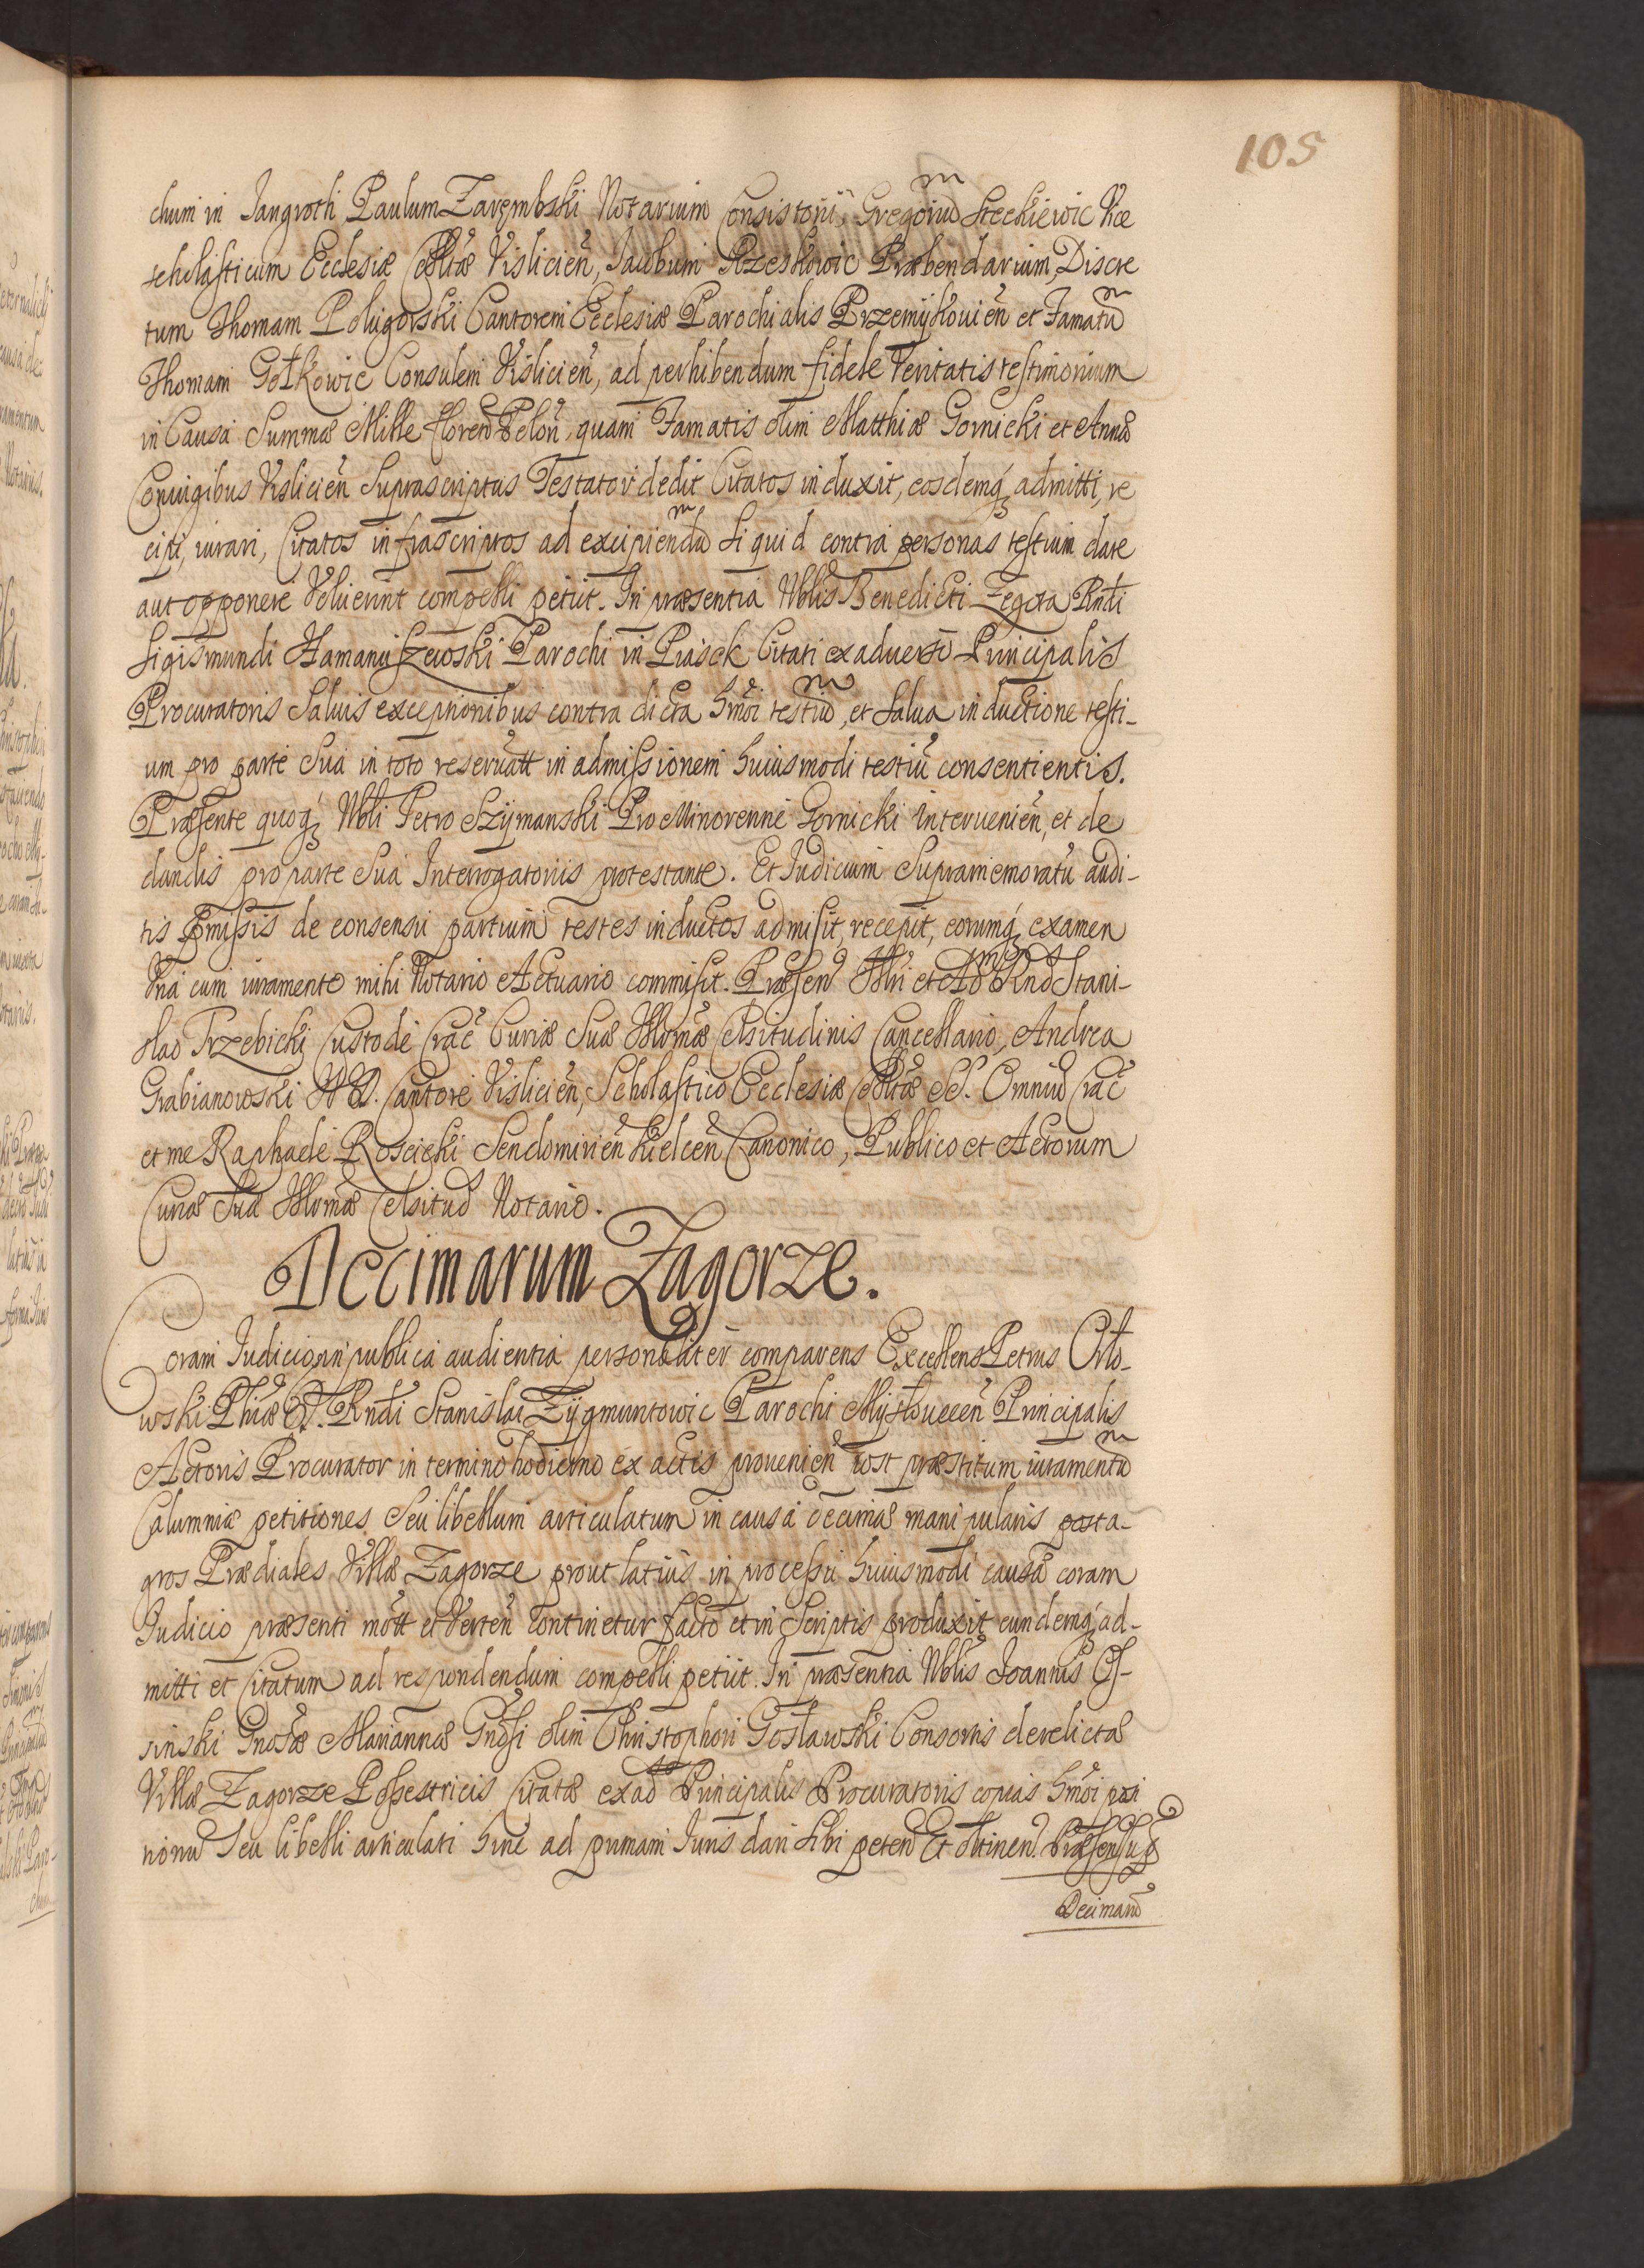 105
chum in Jangroth Paulum Zarembski Notarium Consistorii, Gregoriũ Steckiewic Vice
scholasticum Ecclesiæ Colltæ Vislicień, Jacobum Rzeskowic Præbendarium, Discre
tum Thomam Polugorski Cantorem Ecclesiæ Parochialis Przemÿkouień et Famatũ
Thomam Gołkowic Consulem Vislicień, ad perhibendum fidele Veritatis testimonium
in Causa Summæ Mille floren̄ Polon̄, quam Famatis olim Matthiæ Gornicki et Annæ
Coniugibus Vislicień Suprascriptus Testator dedit Citatos induxit, eosdemq; admitti, re
cipi, iurari, Citatos infrascriptos ad excipiendũ Si quid contra personas testium dare
aut opponere Voluerint compelli petiit. In præsentia Nblis Benedicti Zegota Rndi
Sigismundi Hamanijszewski Parochi in Piasek Citati ex aduerso Principalis
Procuratoris Saluis exceptionibus contra dicta hmoi testiũ, et Salua inductione testi-
um pro parte Sua in toto reseruatt in admissionem huiusmodi testiũ consentientis.
Præsente quoq; Nbli Petro Szÿmanski Pro Minorenne Gornicki interuenień, et de
dandis pro parte Sua Interrogatoriis protestante. Et Judicium Supramemoratũ audi-
tis præmissis de consensu partium testes inductos admisit, recepit, eorumq; examen
Vna cum iuramento mihi Notario Actuario commisit. Præsen Illri et Ad Rndo Stani-
slao Trzebicki Custode Crac̃ Curiæ Suæ Illrmæ Celsitudinis Cancellario, Andrea
Grabianowski Cantore Vislicień, Scholastico Ecclesiæ Colltæ SS. Omniũ Crac̃
et me Raphaele Roscicki Sendomirień Kielcen̄ Canonico, Publico et Actorum
Curiæ Suæ Illrmæ Celsitud Notario.
Decimarum Zagorze.
Coram Judicio in publica audientia personaliter comparens Excellens Petrus Orło-
wski Phiæ D. Rndi Stanislai Zÿgmuntowic Parochi Principalis
Actoris Procurator in termino hodierno ex actis prouenień post præstitum iuramentũ
Calumniæ petitiones Seu libellum articulatum in causa decimæ manipularis post a-
gros Prædiales Villæ Zagorze prout latius in processu huiusmodi causa coram
Judicio præsenti mott et Verten̄ Continetur facto et in Scriptis produxit eundemq; ad-
mitti et Citatum ad respondendum compelli petiit. In præsentia Nblis Joannis Os-
sinski Gnosæ Mariannæ Gnosi olim Christophori Gosławski Consortis derelictæ
Villæ Zagorze Possestricis Citatæ ex ad Principalis Procuratoris copias hmoi peti
tionũ Seu libelli articulati hinc ad primam Juris dari Sibi peten Et obtinen. Præsen
Decimarũ